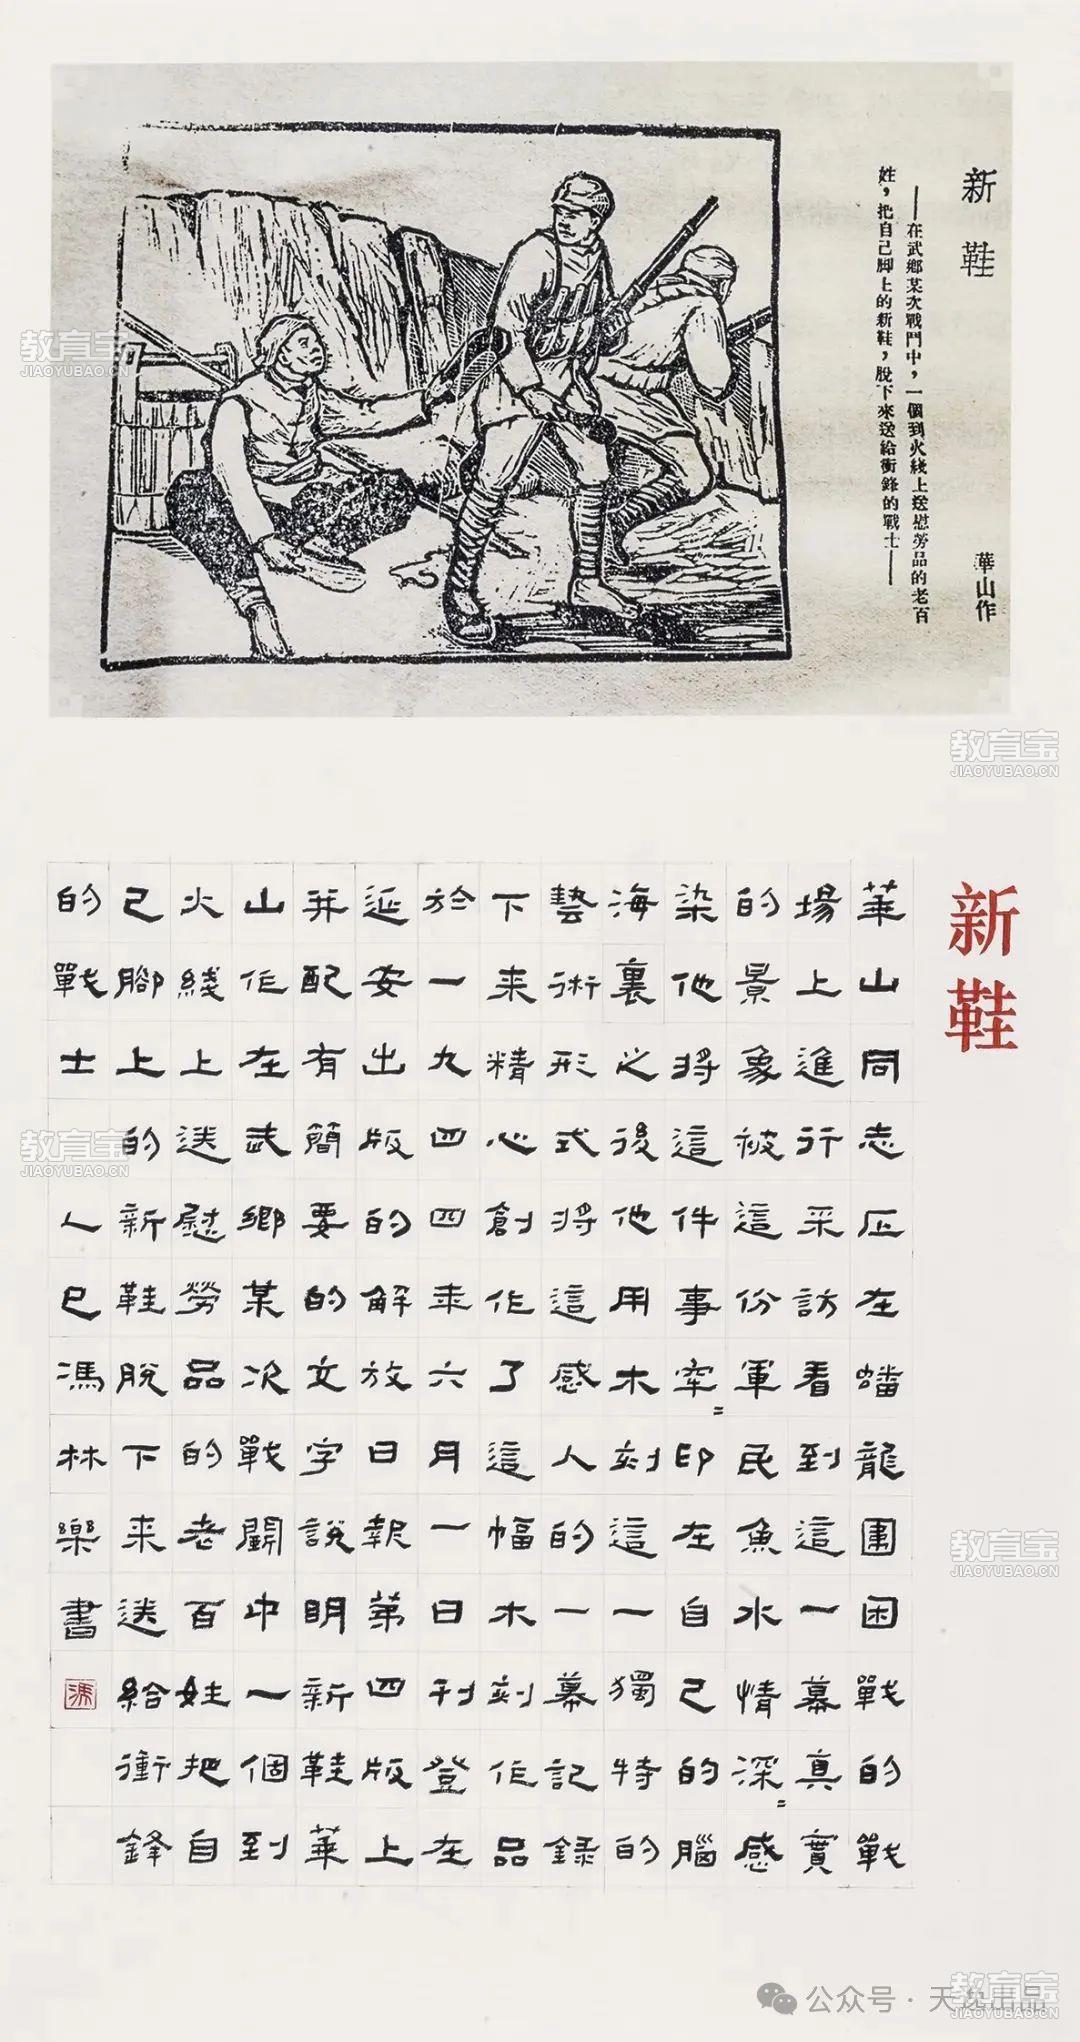 新鞋
華山作
——在武鄉某次戰鬥中，一個到火綫上送慰勞品的老百
姓，把自己脚上的新鞋，脫下來送給衝鋒的戰士——
新鞋
華山同志正在蟠龍圍困戰的戰
場上進行采訪看到這一幕真實
的景象被這份軍民魚水情深=感
染他將這件事牢=印在自己的腦
海裏之後他用木刻這一獨特的
藝術形式將這感人的一幕記錄
下来精心創作了這幅木刻作品
於一九四四年六月一日刊登在
延安出版的解放日報第四版上
并配有簡要的文字說明新鞋華
山作在武鄉某次戰鬭中一個到
火綫上送慰勞品的老百姓把自
己腳上的新鞋脫下来送給衝鋒
的戰士乙巳馮林樂書
馮
教育宝
JIAOYUBAO.CN
教育宝
JIAOYUBAO.CN
教育宝
JIAOYUBAO.CN
教育宝
JIAOYUBAO.CN
教育宝
JIAOYUBAO.CN
公众号·天逸出品